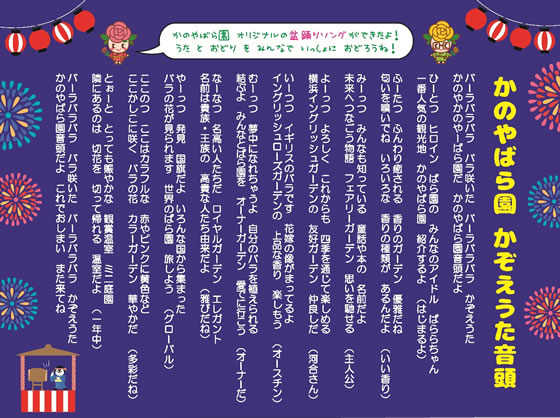 かのやばら園 オリジナルの盆踊りソングができたよ!
うた と おどり を みんなで いっしょに おどろうね!
かのやばら園 かぞえうた音頭
バーラバラバラ バラ咲いた バーラバラバラ かぞえうた
かのやかのやーばら園だ かのやばら園音頭だよ
ひーとつ ヒロイン ばら園の みんなのアイドル ばららちゃん
一番人気の観光地 かのやばら園 紹介するよ(はじまるよ)
ふーたつ ふんわり癒される 香りのガーデン 優雅だね
匂いを嗅いでね いろいろな 香りの種類が あるんだよ(いい香り)
みーっつ みんなも知っている 童話や本の 名前だよ
未来へつなごう物語 フェアリーガーデン 思いを馳せる(主人公)
よーっつ よろしく これからも 四季を通じて楽しめる
横浜イングリッシュガーデンの 友好ガーデン 仲良しだ(河合さん)
いーつつ イギリスのバラです 花嫁の像がまってるよ
イングリッシュローズガーデンの 上品な香り 楽しもう(オースチン)
むーっつ 夢はになれちゃうよ 自分のバラを植えられる
結ぶよ みんなとばら園を オーナーガーデン 愛でに行こう(オーナーだ)
なーなつ 名高い人たちだ ロイヤルガーデン エレガント
名前は貴族・王族の 高貴な人たち由来だよ(雅びだね)
やーっつ 発見 国旗だよ いろんな国から集まった
バラの花が見られます 世界のばら園 旅しよう(グローバル)
ここのつ ここはカラフルな 赤やピンクに黄色など
ここかしこに咲く バラの花 カラーガーデン 華やかだ(多彩だね)
とぉーと とっても賑やかな 観賞温室 ミニ庭園
隣にあるのは 切花を 切って帰れる 温室だよ(一年中)
バーラバラバラ バラ咲いた バーラバラバラ かぞえうた
かのやばら園音頭だよ これでおしまい また来てね